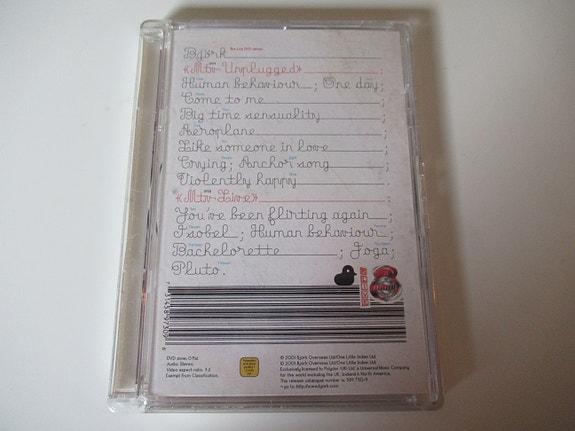 Björk The Live DVD series
«Mtv Unplugged» ;
Human behaviour ; One day;
Come to me ;
Big time sensuality ;
Aeroplane ;
Like someone in love ;
Crying; Anchor song ;
Violently happy .
«Mtv Live» ;
You've been flirting again ;
Isobel ; Human behaviour ;
Bachelorette ; Joga;
Pluto.
DVD zone: 0 Pal
Audio: Stereo
Exempt from Classification.
© 2001 Bjork Overseas Ltd/One Little Indian Ltd.
© 2001 Bjork Overseas Ltd/One Little Indian Ltd.
Exclusively licensed to Polydor (UK) Ltd a Universal Music Company
for the world excluding the UK, Iceland & North America.
This release catalogue number is
go to http://www.bjork.com